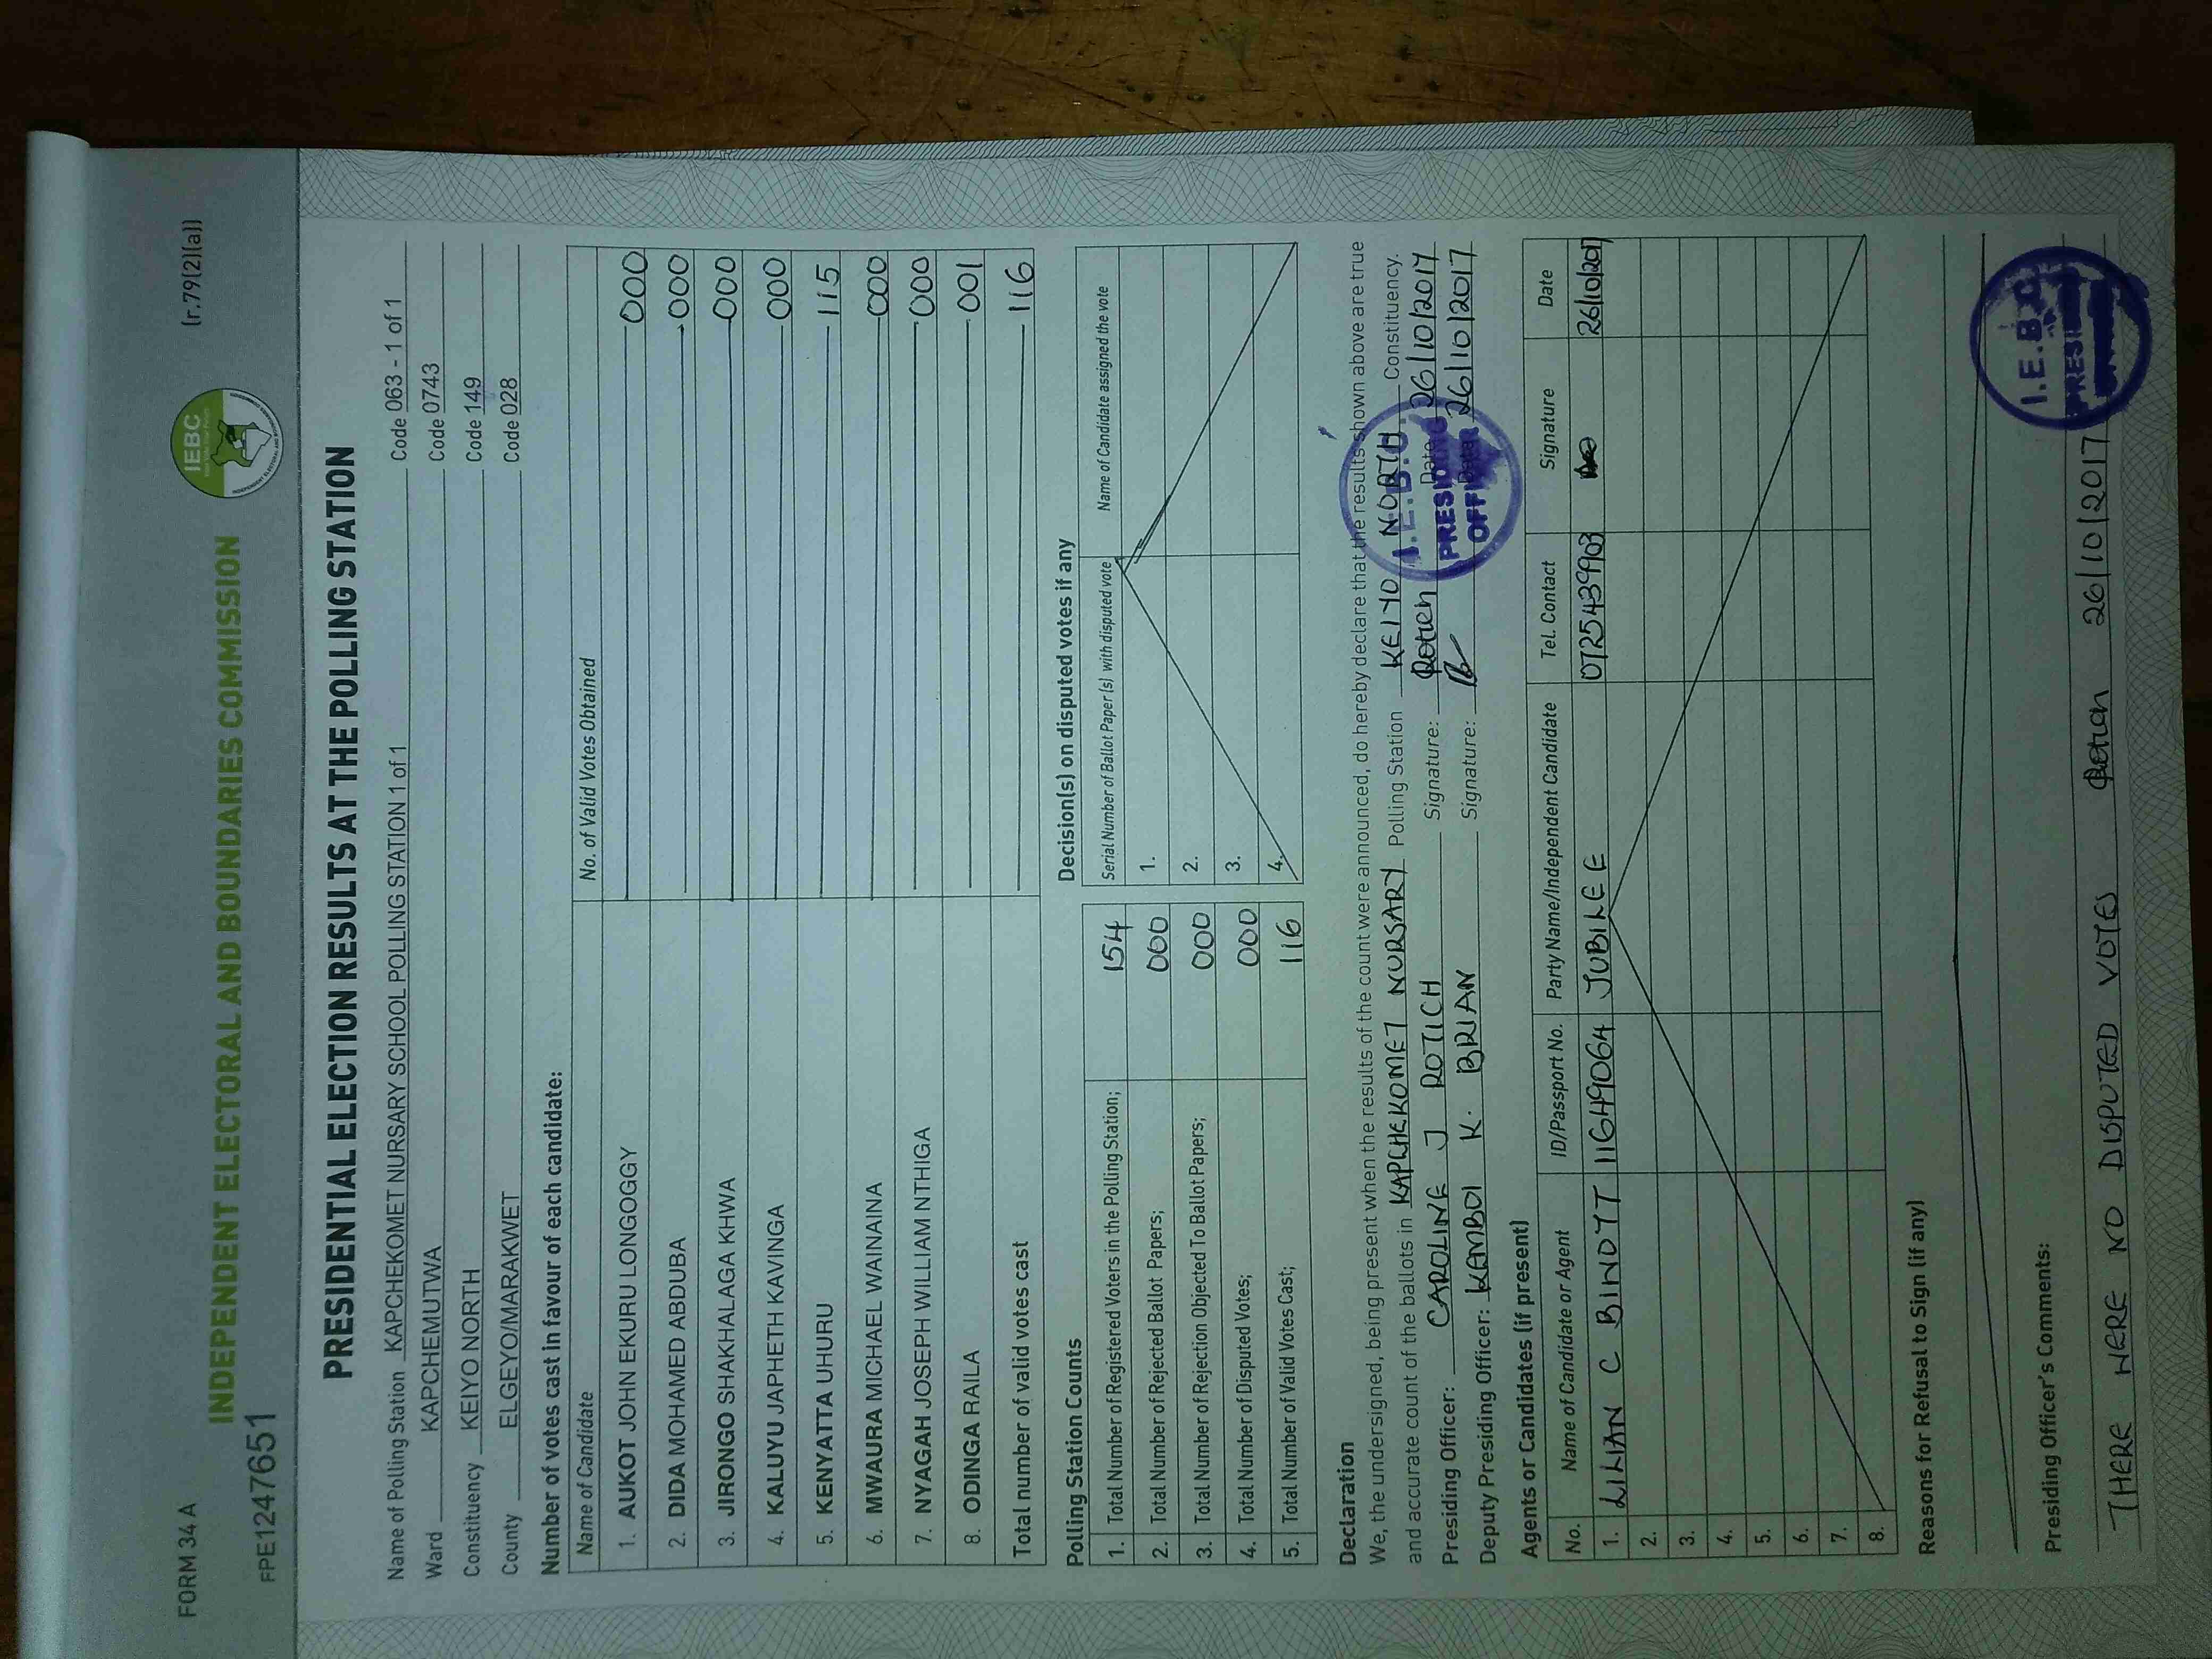 FORM 34 A
(r.79(2)(a))
IEBC
INDEPENDENT ELECTORAL AND BOUNDARIES COMMISSION
FPE1247651
PRESIDENTIAL ELECTION RESULTS AT THE POLLING STATION
Name of Polling Station KAPCHEKOMET NURSARY SCHOOL POLLING STATION 1 of 1 Code 063 - 1 of 1
Ward KAPCHEMUTWA Code 0743
Constituency KEIYO NORTH Code 149
County ELGEYO/MARAKWET Code 028
Number of votes cast in favour of each candidate:
Name of Candidate No. of Valid Votes Obtained
1. AUKOT JOHN EKURU LONGOGGY 000
2. DIDA MOHAMED ABDUBA 000
3. JIRONGO SHAKHALAGA KHWA 000
4. KALUYU JAPHETH KAVINGA 000
5. KENYATTA UHURU 115
6. MWAURA MICHAEL WAINAINA 000
7. NYAGAH JOSEPH WILLIAM NTHIGA 000
8. ODINGA RAILA 001
Total number of valid votes cast 116
Polling Station Counts
1. Total Number of Registered Voters in the Polling Station; 154
2. Total Number of Rejected Ballot Papers; 000
3. Total Number of Rejection Objected To Ballot Papers; 000
4. Total Number of Disputed Votes; 000
5. Total Number of Valid Votes Cast; 116
Decision(s) on disputed votes if any
Serial Number of Ballot Paper(s) with disputed vote Name of Candidate assigned the vote
1.
2.
3.
4.
Declaration
We, the undersigned, being present when the results of the count were announced, do hereby declare that the results shown above are true
and accurate count of the ballots in KAPCHEKOMET NURSARY Polling Station KEIYO NORTH Constituency.
Presiding Officer: CAROLINE J ROTICH Signature: Rotich Date 26/10/2017
Deputy Presiding Officer: KEMBOI K. BRIAN Signature: Date 26/10/2017
I.E.B.C.
PRESIDING
OFFICER
Agents or Candidates (if present)
No. Name of Candidate or Agent ID/Passport No. Party Name/Independent Candidate Tel. Contact Signature Date
1. LILIAN C BINOTT 11649064 JUBILEE 0725439903 26/10/2017
2.
3.
4.
5.
6.
7.
8.
Reasons for Refusal to Sign (if any)
Presiding Officer's Comments:
THERE WERE NO DISPUTED VOTES Rotich 26/10/2017
I.E.B.C